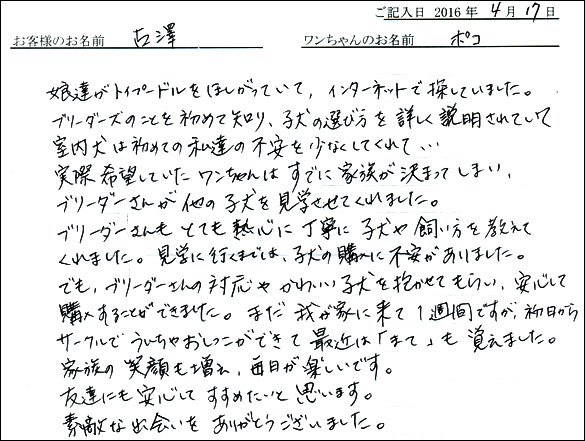 ご記入日 2016 年 4 月 17 日
お客様のお名前 古澤 ワンちゃんのお名前 ポコ
娘達がトイプードルをほしがっていて、インターネットで探していました。
ブリーダーズのことを初めて知り、子犬の選び方を詳しく説明されていて
室内犬は初めての私達の不安を少なくしてくれて…
実際希望していたワンちゃんはすでに家族が決まってしまい、
ブリーダーさんが他の子犬を見学させてくれました。
ブリーダーさんもとても熱心に丁寧に子犬や飼い方を教えて
くれました。見学に行くまでは、子犬の購入に不安がありました。
でも、ブリーダーさんの対応やかわいい子犬を抱かせてもらい、安心して
購入することができました。まだ我が家に来て1週間ですが、初日から
サークルでうんちやおしっこができて最近は「まて」も覚えました。
家族の笑顔も増え、毎日が楽しいです。
友達にも安心してすすめたいと思います。
素敵な出会いをありがとうございました。